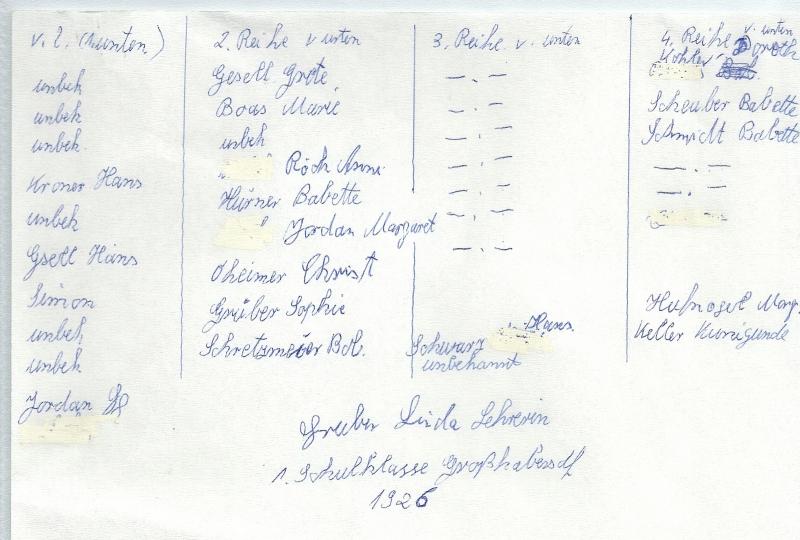 v. l. (v. unten)
unbek
unbek
unbek.
Kroner Hans
unbek
Gsell Hans
Simon
unbek
unbek
Jordan
2. Reihe v unten
Gesell Grete
Boas Marie
unbek
Röch Anni
Hürner Babette
Jordan Margaret
Oheimer Christ
Gruber Sophie
Schretzmeier Bab.
3. Reihe v. unten
— . —
— . —
— . —
— . —
— . —
— . —
— . —
Schwarz Hans
unbekannt
4. Reihe v. unten
Kohler Doroth
Scheuber Babette
Schmidt Babette
— . —
— . —
Hufnagel Marg.
Keller Kunigunde
Gruber Linda Lehrerin
1. Schulklasse Großhabersdf
1926